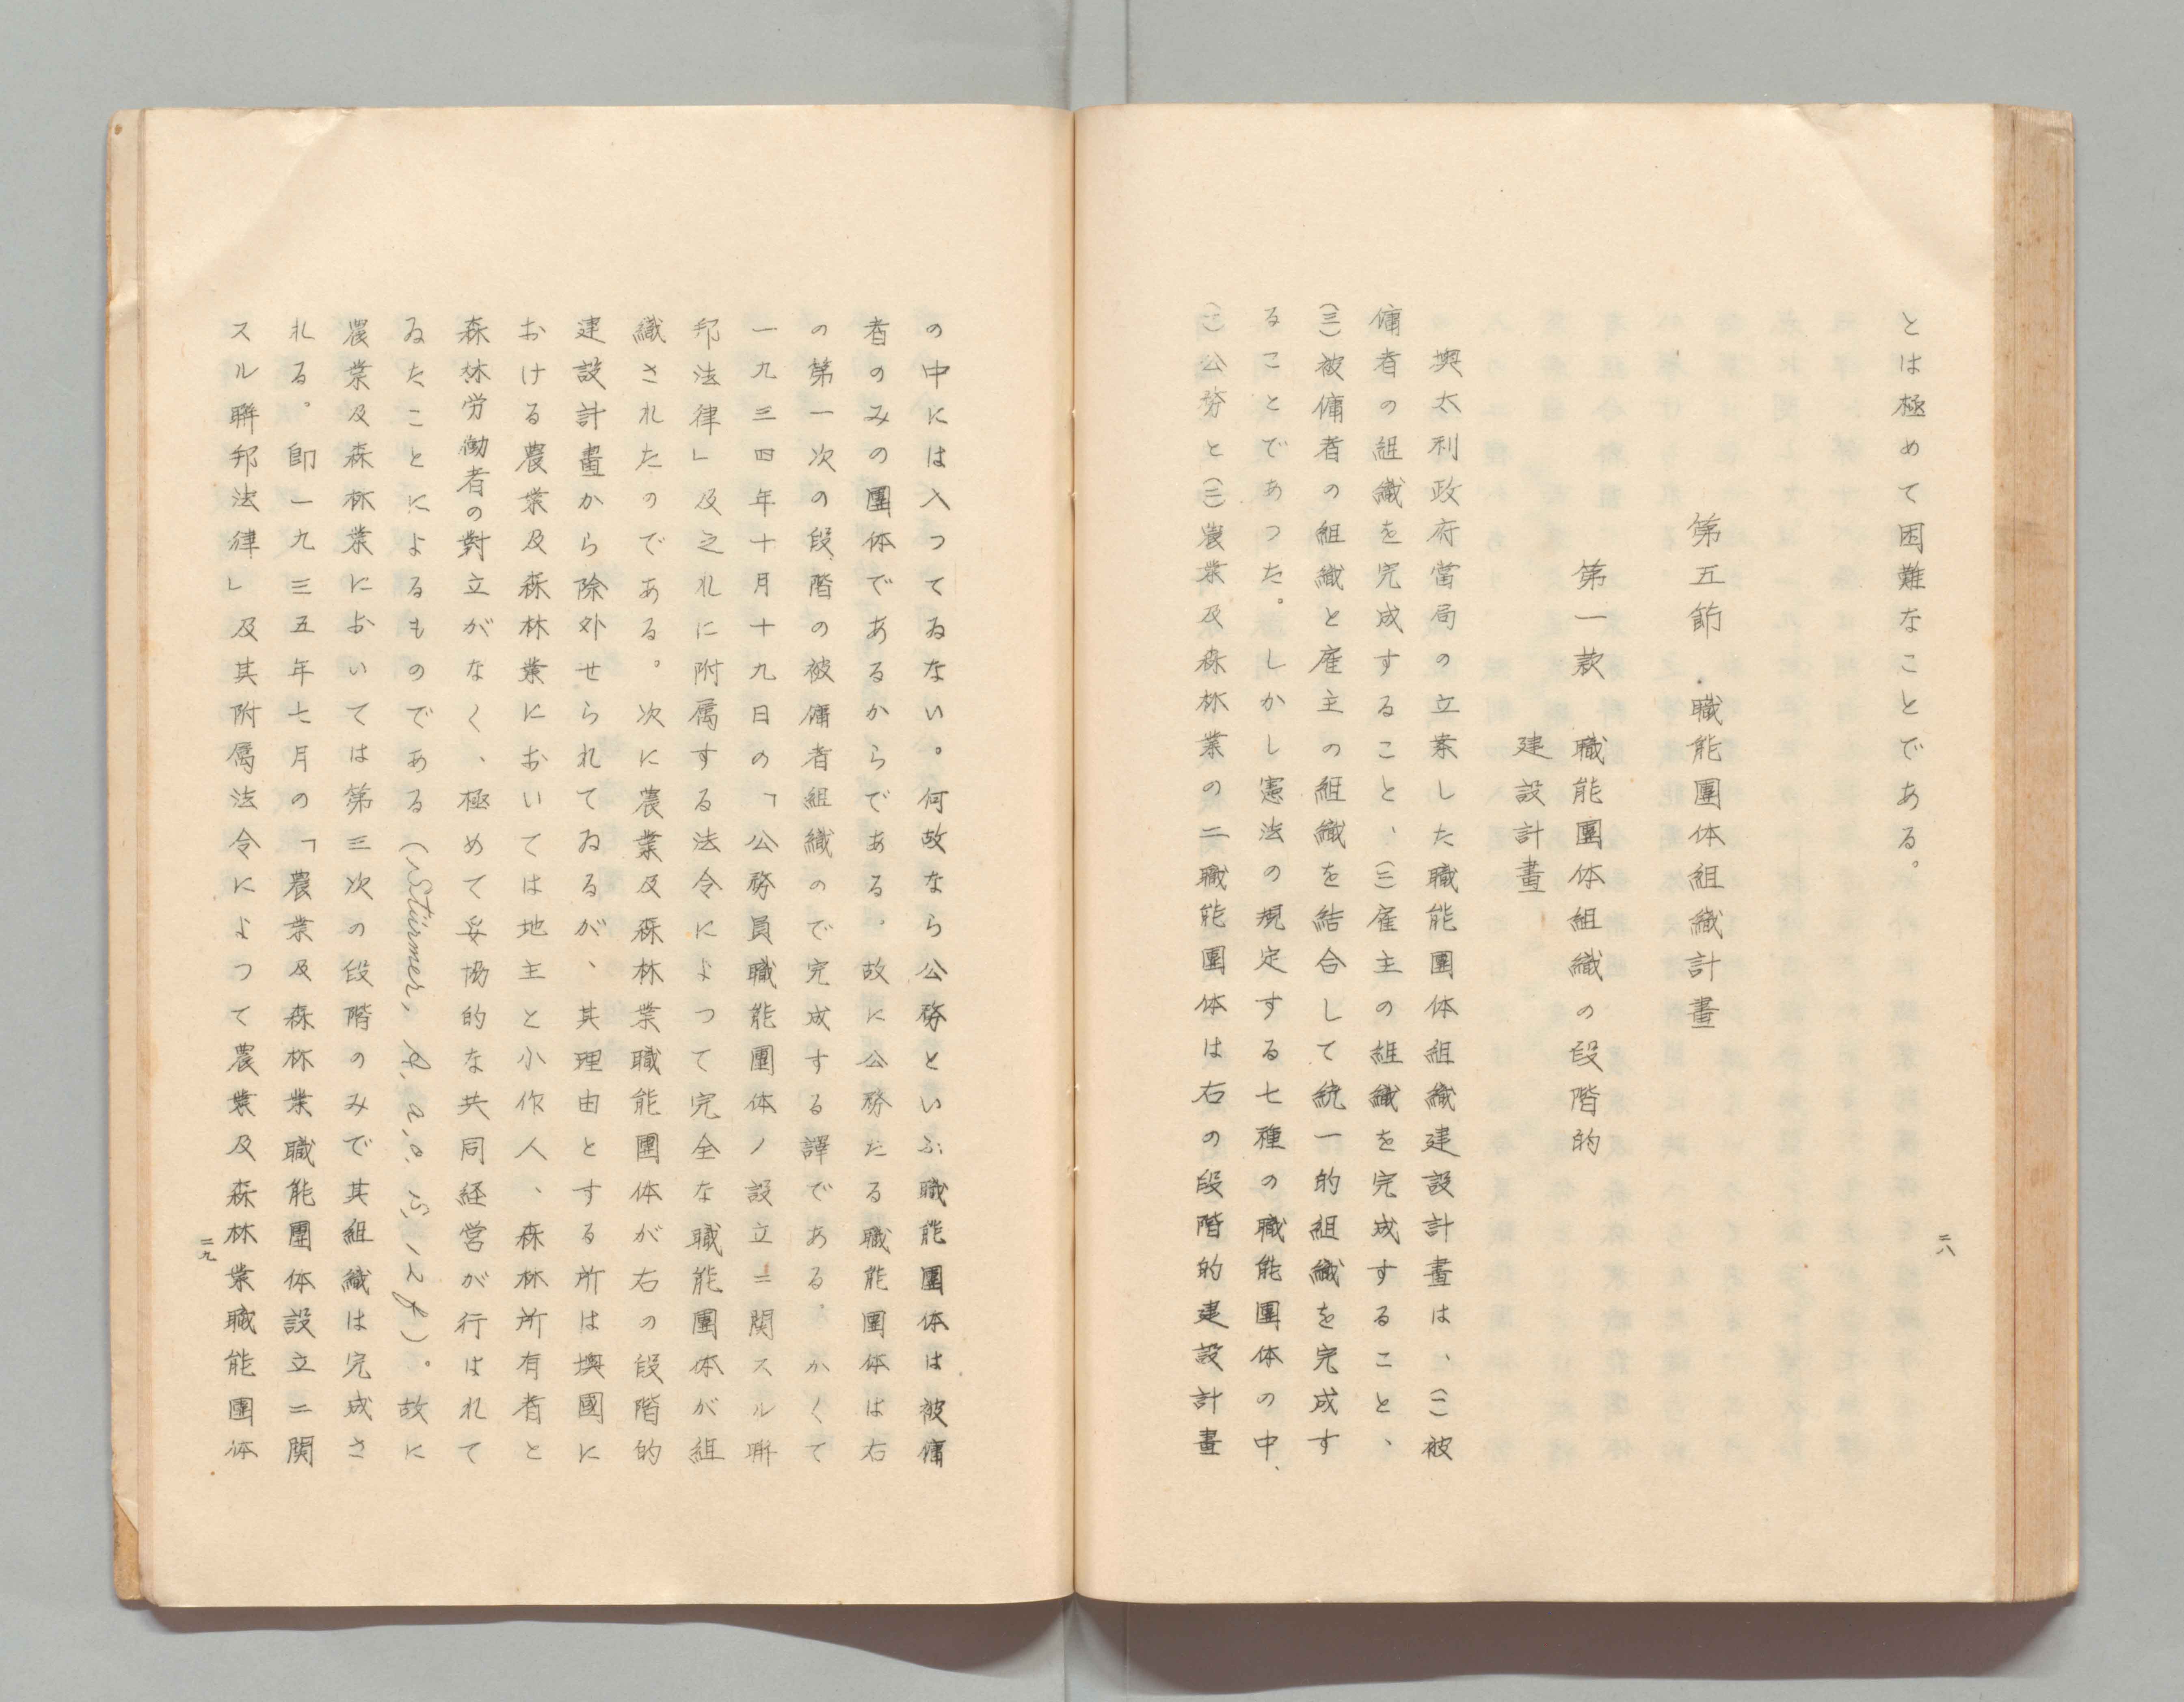 とは極めて困難なことである。
第五節　職能團体組織計畫
第一款　職能團体組織の段階的
建設計畫
墺太利政府當局の立案した職能團体組織建設計畫は、(一)被
傭者の組織を完成すること、(二)雇主の組織を完成すること、
(三)被傭者の組織と雇主の組織を結合して統一的組織を完成す
ることであつた。しかし憲法の規定する七種の職能團体の中、
(一)公務と(二)農業及森林業の二職能團体は右の段階的建設計畫
二八
の中には入つてゐない。何故なら公務といふ職能團体は被傭
者のみの團体であるからである。故に公務たる職能團体は右
の第一次の段階の被傭者組織ので完成する譯である。かくて
一九三四年十月十九日の「公務員職能團体ノ設立ニ関スル聯
邦法律」及之れに附属する法令によつて完全な職能團体が組
織されたのである。次に農業及森林業職能團体が右の段階的
建設計畫から除外せられてゐるが、其理由とする所は墺國に
おける農業及森林業においては地主と小作人、森林所有者と
森林労働者の對立がなく、極めて妥協的な共同経営が行はれて
ゐたことによるものである(Stürmer, a.a.O. S.)。故に
農業及森林業においては第三次の段階のみで其組織は完成さ
れる。即一九三五年七月の「農業及森林業職能團体設立ニ関
スル聯邦法律」及其附属法令によつて農業及森林業職能團体
二九